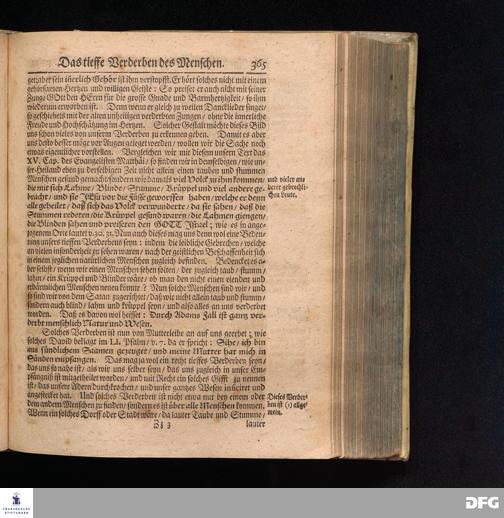 Das tieffe Verderben des Menschen. 365
get; aber sein innerlich Gehör ist ihm verstopfft. Er hört solches nicht mit einem
gehorsamen Hertzen und willigen Geiste: So preiset er auch nicht mit seiner
Zunge GOtt den HErrn für die grosse Gnade und Barmhertzigkeit, so ihm
wiederum erworben ist. Denn wenn er gleich zu weilen Dancklieder singet,
so geschiehets mit der alten unheiligen verderbten Zungen, ohne die innerliche
Freude und Hochschätzung im Hertzen. Solcher Gestalt möchte dieses Bild
uns schon vieles von unserm Verderben zu erkennen geben. Damit es aber
uns desto besser möge vor Augen geleget werden, wollen wir die Sache noch
etwas eigentlicher vorstellen. Vergleichen wir mit diesem unsern Text das
XV. Cap. des Evangelisten Matthäi, so finden wir in demselbigen, wie un-
ser Heiland eben zu derselbigen Zeit nicht allein einen tauben und stummen
Menschen gesund gemacht, sondern wie damals viel Volck zu ihm kommen,
die mit sich Lahme, Blinde, Stumme, Krüppel und viel andere ge-
bracht, und sie JEsu vor die Füsse geworffen haben, welche er denn
alle geheilet, daß sich das Volck verwunderte, da sie sahen, daß die
Stummen redeten, die Krüppel gesund waren, die Lahmen giengen,
die Blinden sahen und preiseten den GOTT Israel; wie es in ange-
zogenem Orte lautet v. 30. 31. Nun auch dieses mag uns denn wol eine Bedeu-
tung unsers tieffen Verderbens seyn: indem die leibliche Gebrechen, welche
an vielen insonderheit zu sehen waren, nach der geistlichen Beschaffenheit sich
in einem jeglichen natürlichen Menschen zugleich befinden. Bedencket es a-
ber selbst, wenn wir einen Menschen sehen solten, der zugleich taub, stumm,
lahm, ein Krüppel und Blinder wäre, ob man den nicht einen elenden und
erbärmlichen Menschen nennen könnte? Nun solche Menschen sind wir, und
so sind wir von dem Satan zugerichtet, daß wir nicht allein taub und stumm,
sondern auch blind, lahm und krüppel seyn, und also alles an uns verderbet
worden. Daß es davon wol heisset: Durch Adams Fall ist gantz ver-
derbt menschlich Natur und Wesen.
Solches Verderben ist nun von Mutterleibe an auf uns geerbet; wie
solches David beklagt im LI. Psalm, v. 7. da er spricht: Sihe, ich bin
aus sündlichem Saamen gezeuget, und meine Mutter hat mich in
Sünden empfangen. Das mag ja wol ein recht tieffes Verderben seyn,
das uns so nahe ist, als wir uns selber seyn, das uns zugleich in unser Em-
pfängniß ist mitgetheilet worden, und mit Recht ein solches Gifft zu nennen
ist, das unsere Adern durchkrochen, und unser gantzes Wesen inficiret und
angestecket hat. Und solches Verderben ist nicht etwa nur bey einem oder
dem andern Menschen zu finden, sondern es ist über alle Menschen kommen.
Wenn ein solches Dorff oder Stadt wäre, da lauter Taube und Stumme,
Zz 3 lauter
und vieler an-
derer gebrechli-
chen Leute.
Dieses Verder-
ben ist (1) allge-
mein.
FRANCKESCHE
STIFTUNGEN
DFG